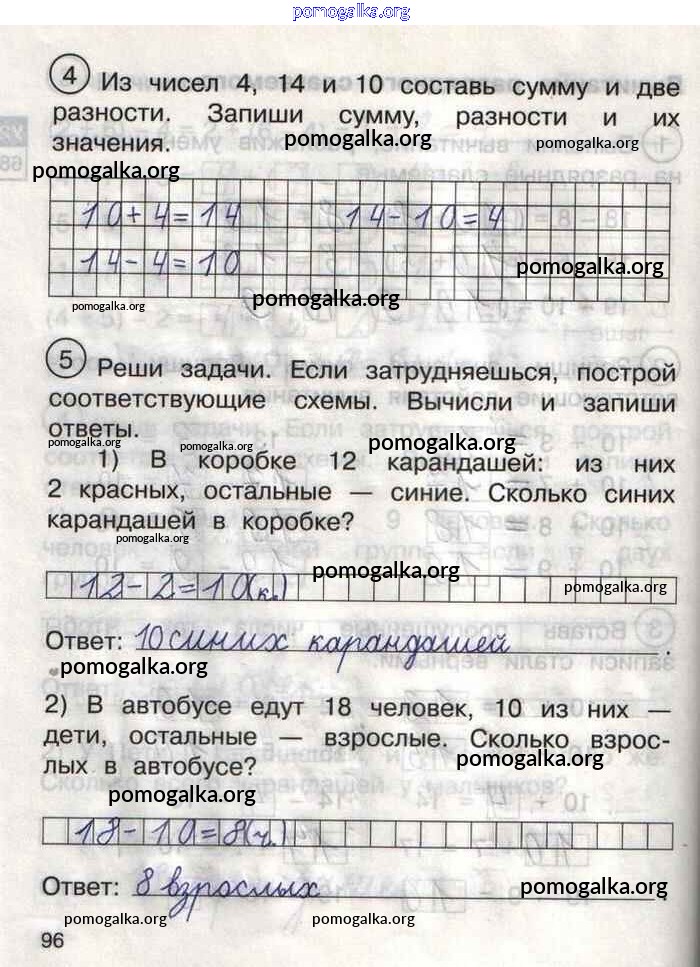 pomogalka.org
4 Из чисел 4, 14 и 10 составь сумму и две
разности. Запиши сумму, разности и их
pomogalka.org
значения.
pomogalka.org
pomogalka.org
10+4=14 14-10=4
14-4=10
pomogalka.org
pomogalka.org
pomogalka.org
5 Реши задачи. Если затрудняешься, построй
соответствующие схемы. Вычисли и запиши
ответы.
pomogalka.org
pomogalka.org
pomogalka.org
1) В коробке 12 карандашей: из них
2 красных, остальные — синие. Сколько синих
карандашей в коробке?
pomogalka.org
pomogalka.org
12-2=10(к.)
pomogalka.org
Ответ: 10 синих карандашей.
pomogalka.org
2) В автобусе едут 18 человек, 10 из них —
дети, остальные — взрослые. Сколько взрос-
лых в автобусе?
pomogalka.org
pomogalka.org
18-10=8(ч.)
Ответ: 8 взрослых.
pomogalka.org
pomogalka.org
pomogalka.org
pomogalka.org
96